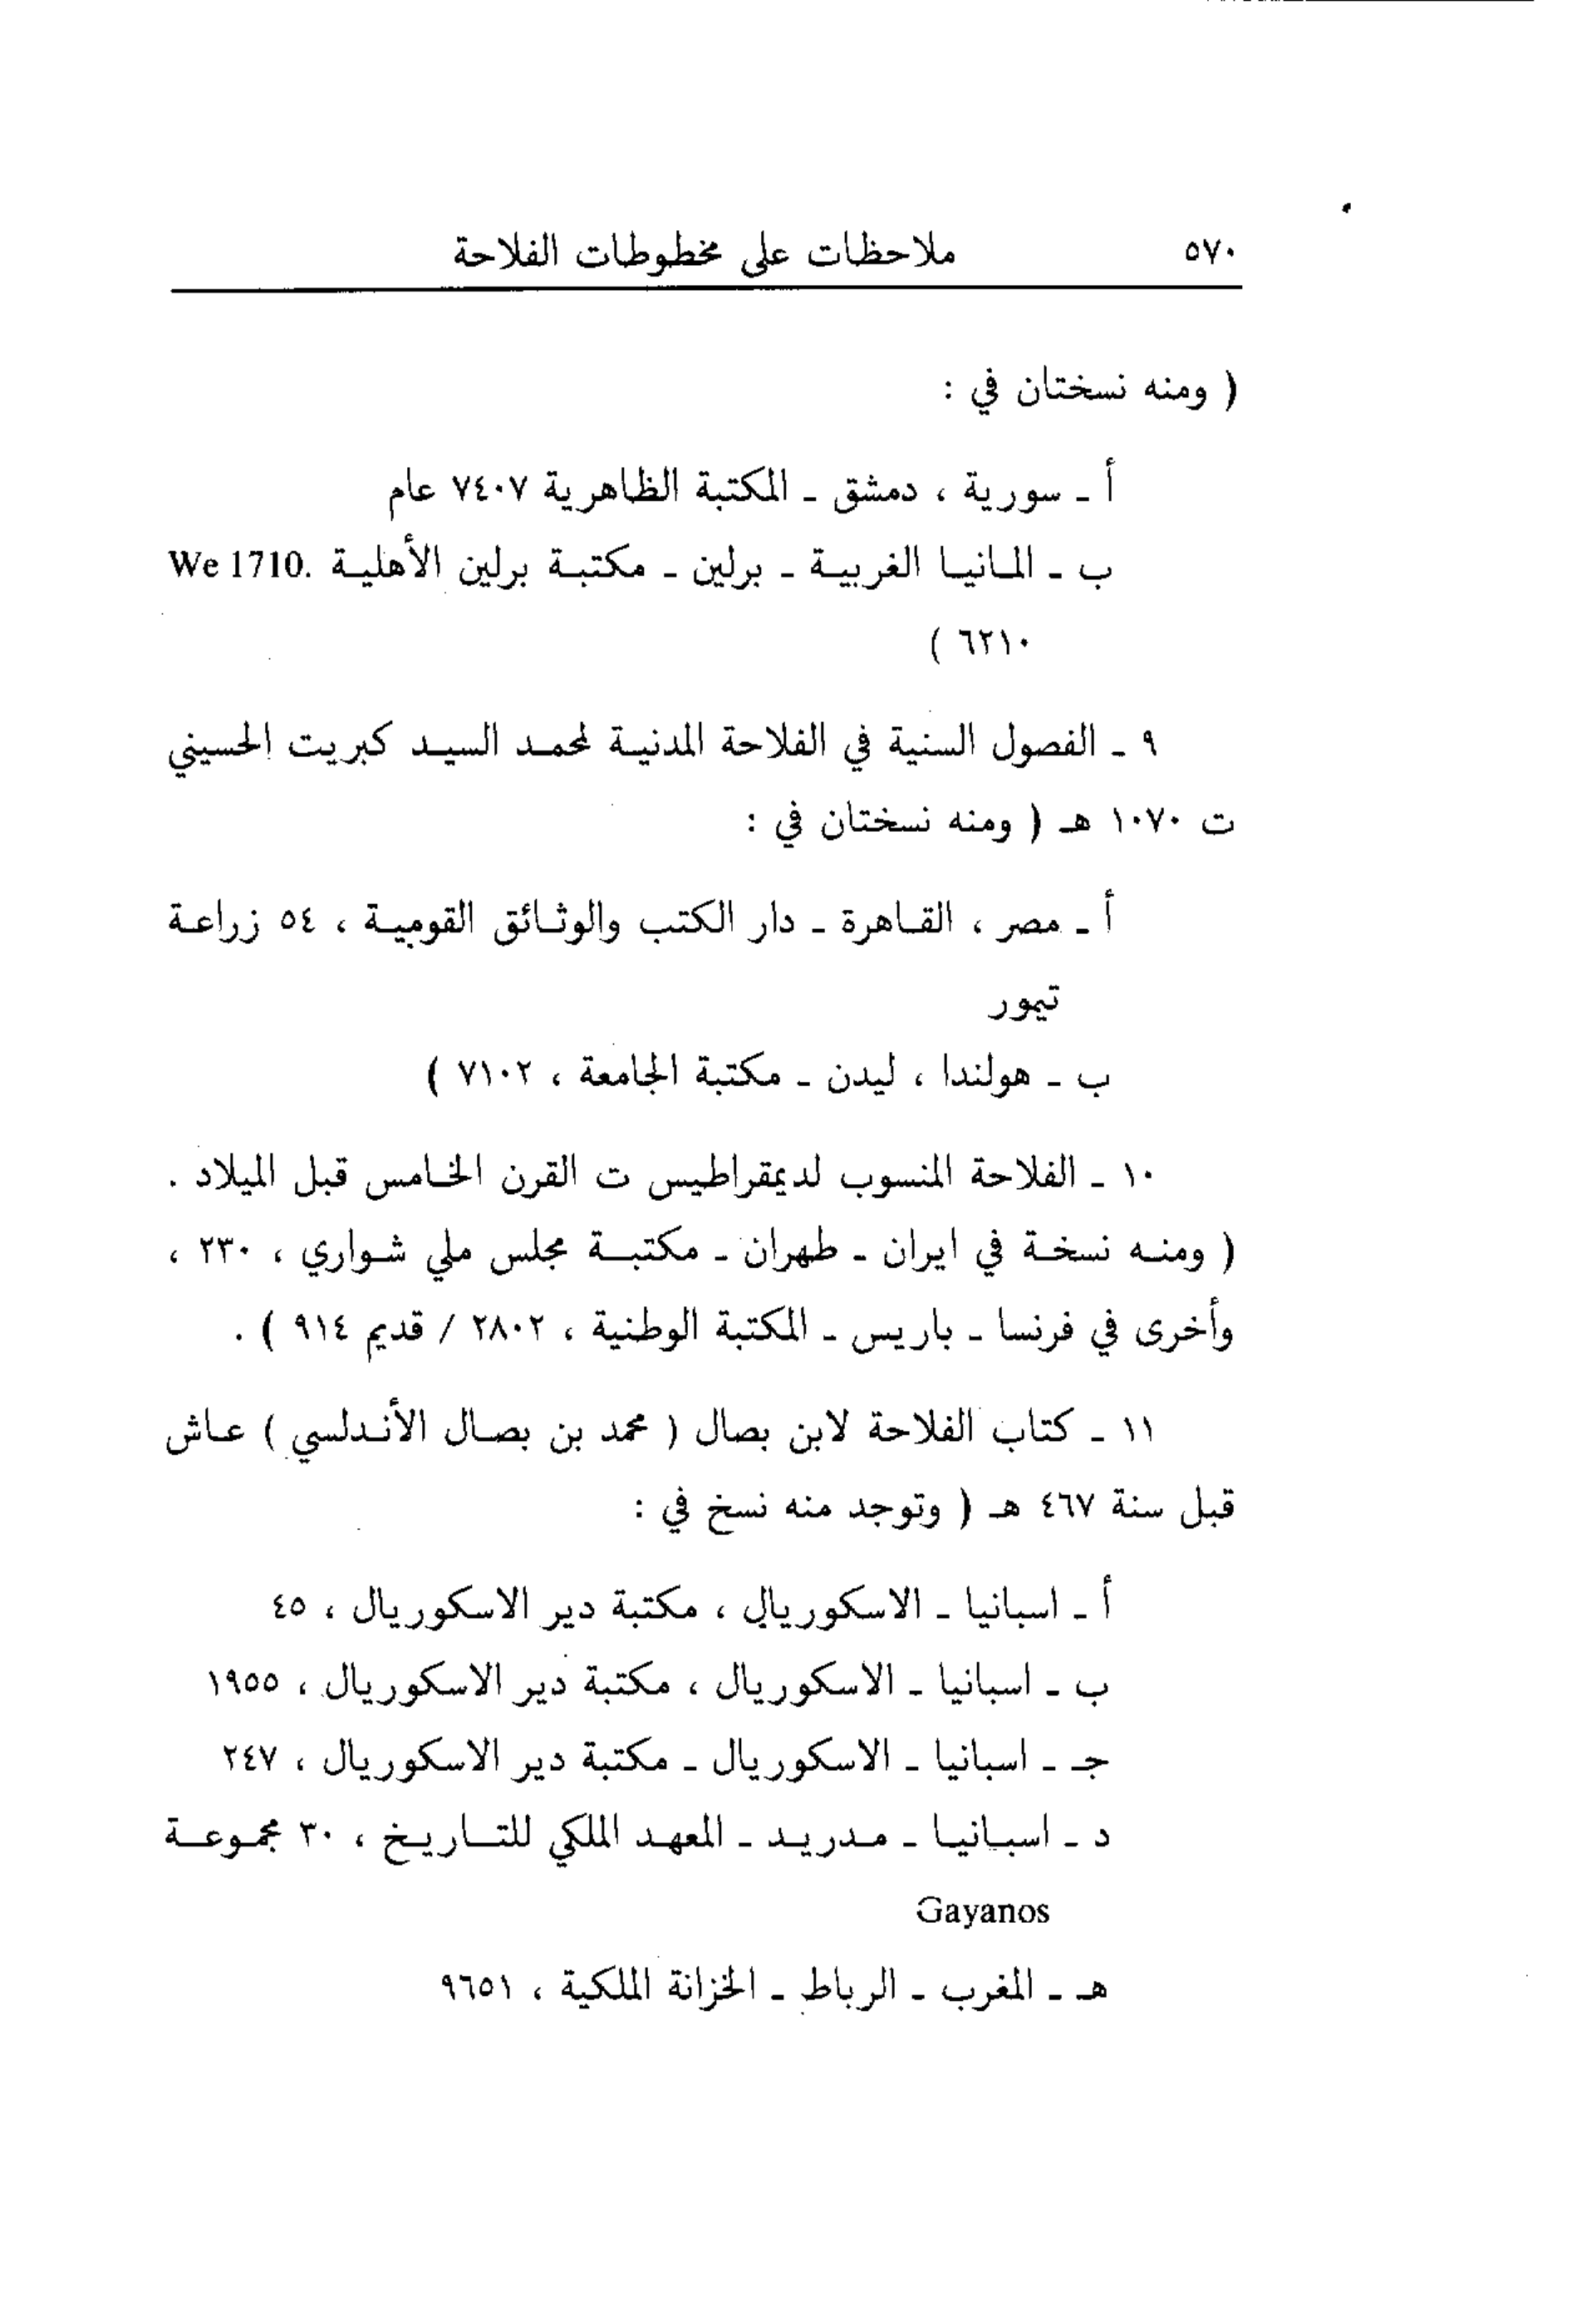 ٥٧٠ ملاحظات على مخطوطات الفلاحة
( ومنه نسختان في :
أ ـ سورية ، دمشق ـ المكتبة الظاهرية ٧٤٠٧ عام
ب ـ المانيا الغربية ـ برلين ـ مكتبة برلين الأهلية We 1710.
٦٢١٠ )
٩ ـ الفصول السنية في الفلاحة المدنية لمحمد السيد كبريت الحسيني
ت ١٠٧٠ هـ ( ومنه نسختان في :
أ ـ مصر ، القاهرة ـ دار الكتب والوثائق القومية ، ٥٤ زراعة
تيمور
ب ـ هولندا ، ليدن ـ مكتبة الجامعة ، ٧١٠٢ )
١٠ ـ الفلاحة المنسوب لديمقراطيس ت القرن الخامس قبل الميلاد .
( ومنه نسخة في ايران ـ طهران ـ مكتبة مجلس ملي شواري ، ٢٣٠ ،
وأخرى في فرنسا ـ باريس ـ المكتبة الوطنية ، ٢٨٠٢ / قديم ٩١٤ ) .
١١ ـ كتاب الفلاحة لابن بصال ( محمد بن بصال الأندلسي ) عاش
قبل سنة ٤٦٧ هـ ( وتوجد منه نسخ في :
أ ـ اسبانيا ـ الاسكوريال ، مكتبة دير الاسكوريال ، ٤٥
ب ـ اسبانيا ـ الاسكوريال ، مكتبة دير الاسكوريال ، ١٩٥٥
جـ ـ اسبانيا ـ الاسكوريال ـ مكتبة دير الاسكوريال ، ٢٤٧
د ـ اسبانيا ـ مدريد ـ المعهد الملكي للتاريخ ، ٣٠ مجموعة
Gayanos
هـ ـ المغرب ـ الرباط ـ الخزانة الملكية ، ٩٦٥١